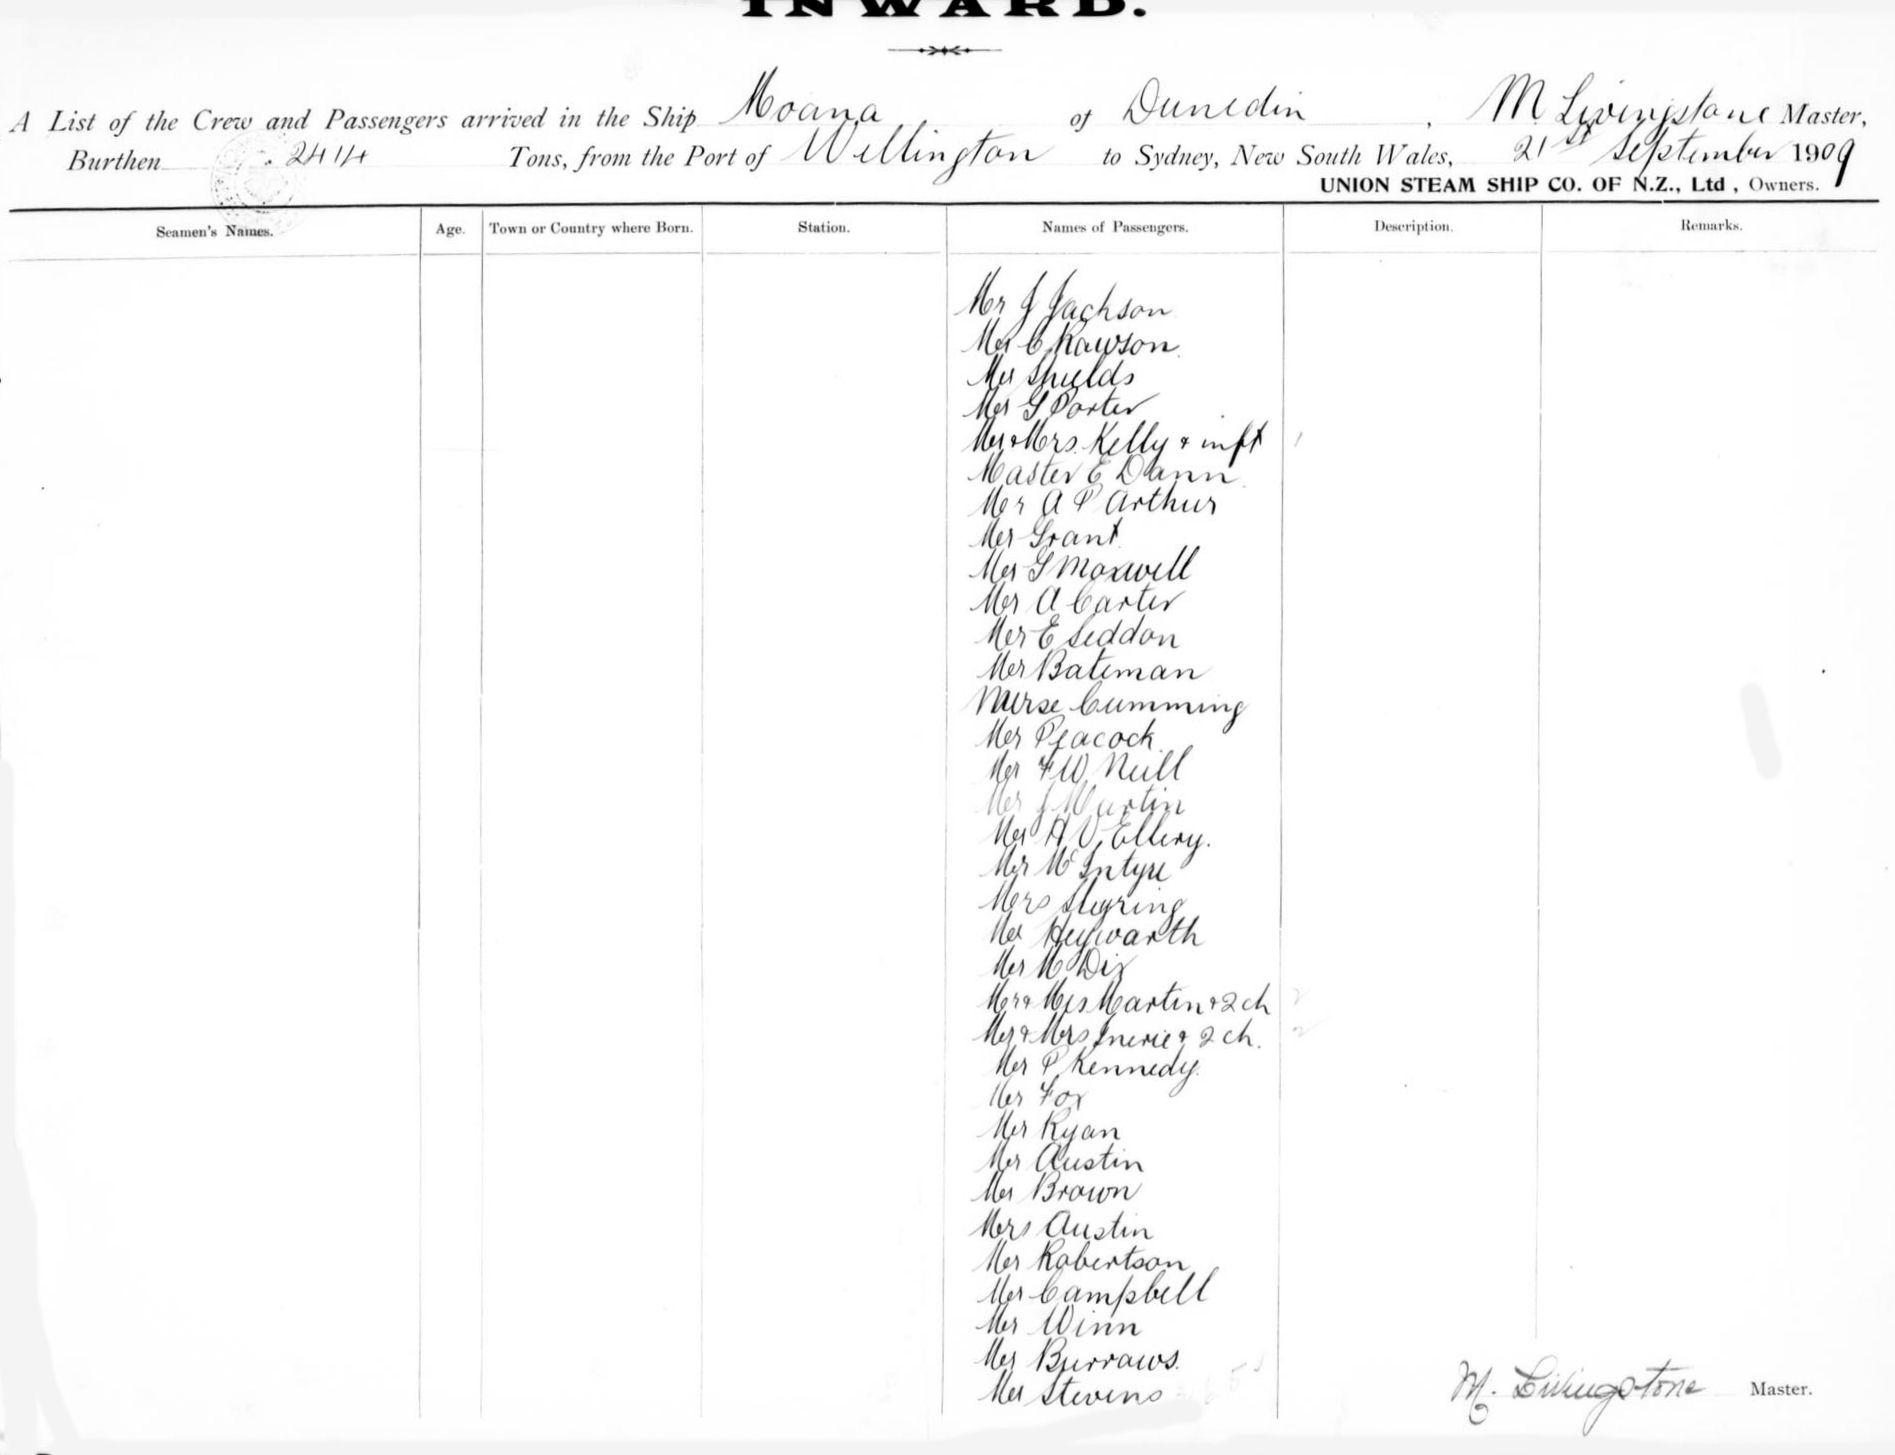 INWARD.
A List of the Crew and Passengers arrived in the Ship Moana of Dunedin, M Livingstone Master,
Burthen 2414 Tons, from the Port of Wellington to Sydney, New South Wales, 21st September 1909
UNION STEAM SHIP CO. OF N.Z., Ltd, Owners.
Seamen's Names. Age. Town or Country where Born. Station. Names of Passengers. Description. Remarks.
Mr J Jackson
Mr C Rawson
Mr Shields
Mr G Porter
Mr & Mrs. Kelly & inft
Master E Dann
Mr A P Arthur
Mr Grant
Mr G Maxwell
Mr A Carter
Mr E Seddon
Mr Bateman
Nurse Cumming
Mr Peacock
Mr F W Neill
Mr J Martin
Mr H V Ellery.
Mr McIntyre
Mrs
Mr Heywarth
Mr M Dix
Mr & Mrs Martin & 2 ch
Mr & Mrs & 2 ch.
Mr P Kennedy.
Mr Fox
Mr Ryan
Mr Austin
Mr Brown
Mrs Austin
Mr Robertson
Mr Campbell
Mr Winn
Mr Burrows.
Mr Stevens
M. Livingstone Master.